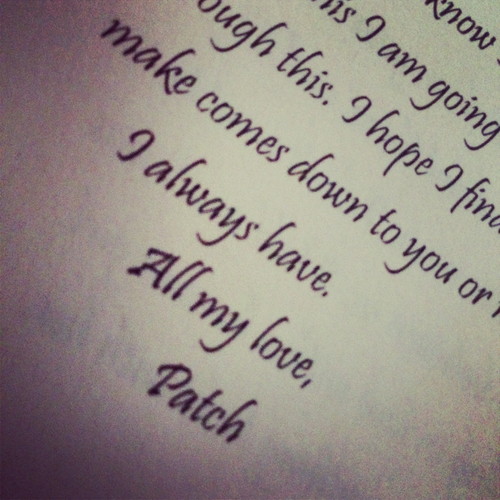 know
his I am going
ough this. I hope I find
make comes down to you or
I always have.
All my love,
Patch